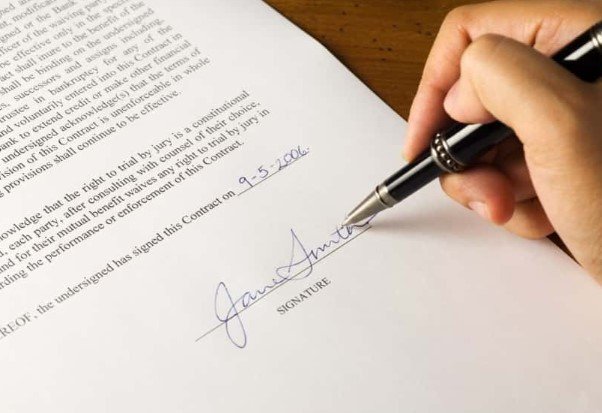 modificat
gned or the Bank
icer of the waiving party
be effective only in the speci
act shall inure to the benefit of the
shall be binding on the undersigned
s, successors and assigns including,
trustee in bankruptcy for any of the
and voluntarily entered into this Contract in
bank to extend credit or make other financial
undersigned acknowledge(s) that the terms of
vision of this Contract is unenforceable in whole
g provisions shall continue to be effective.
owledge that the right to trial by jury is a constitutional
d, each party, after consulting with counsel of their choice,
and for their mutual benefit waives any right to trial by jury in
arding the performance or enforcement of this Contract.
EREOF, the undersigned has signed this Contract on 9-5-2006.
Jane Smith
SIGNATURE